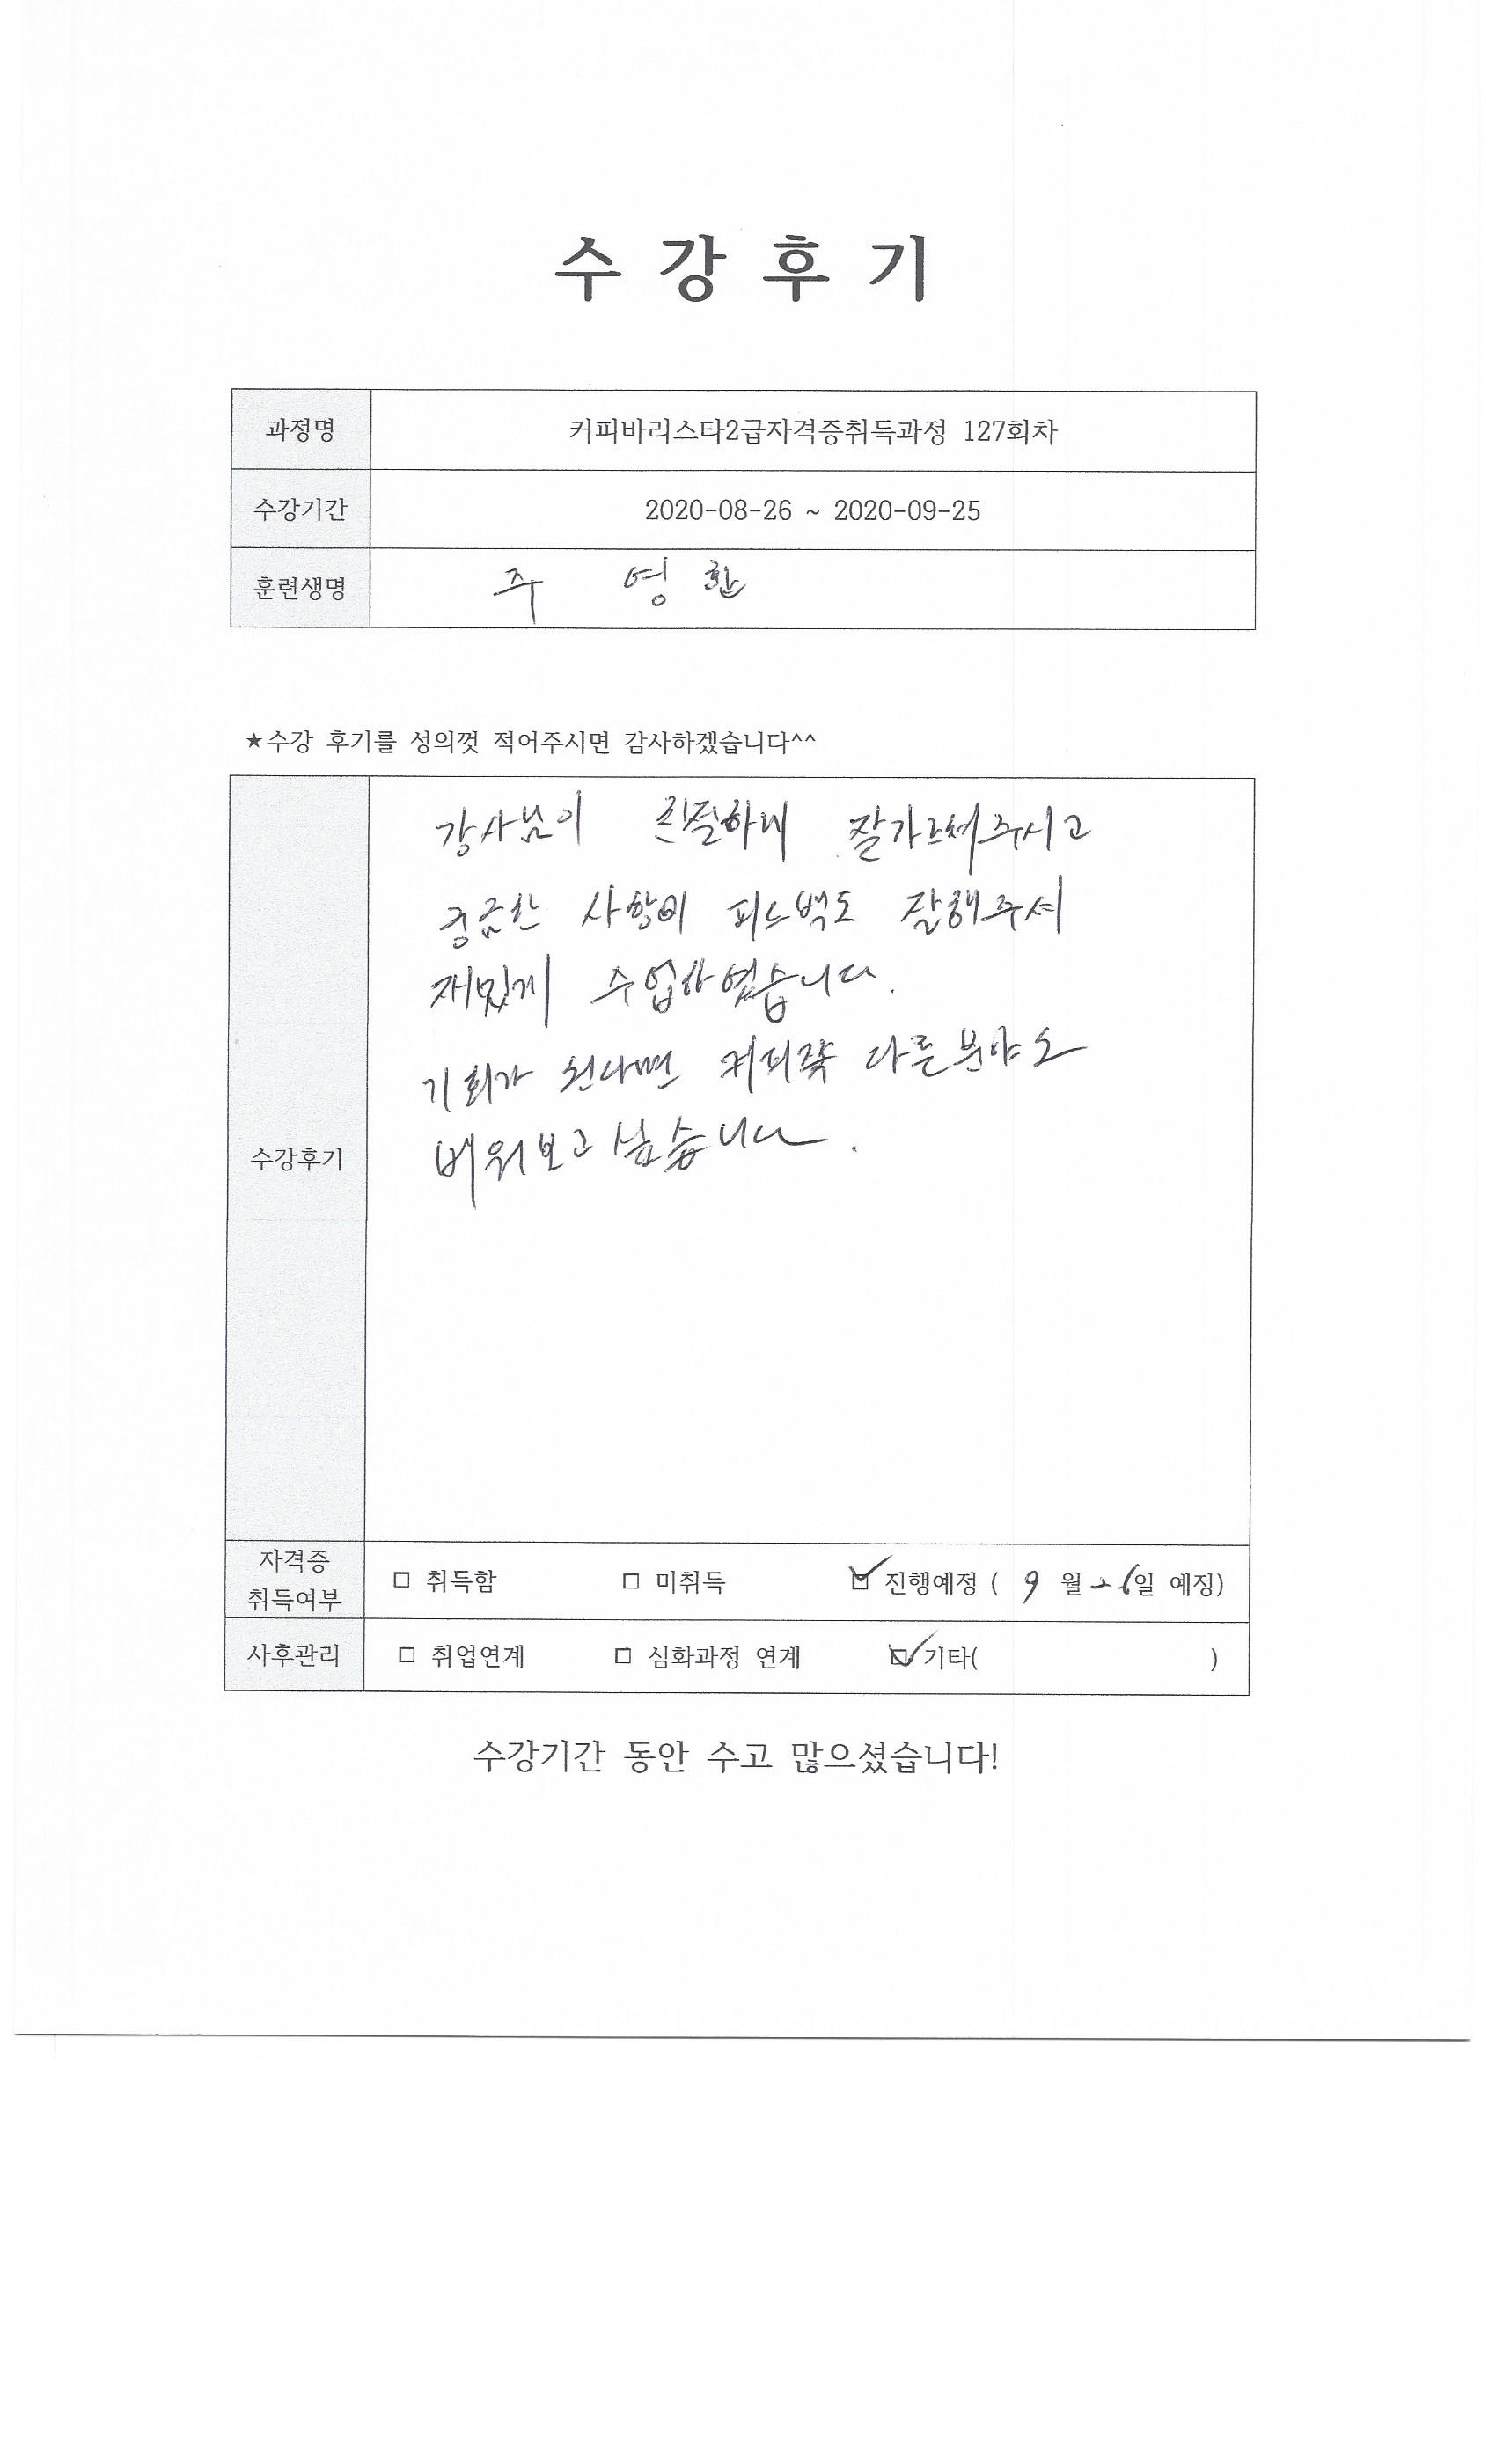 수 강 후 기
과정명 커피바리스타2급자격증취득과정 127회차
수강기간 2020-08-26 ~ 2020-09-25
훈련생명 주 영환
★수강 후기를 성의껏 적어주시면 감사하겠습니다^^
수강후기
강사님이 친절하게 잘가르쳐주시고
궁금한 사항에 피드백도 잘해주셔
재밌게 수업하였습니다.
기회가 된다면 커피쪽 다른분야도
배워보고 싶습니다.
자격증 취득여부 □ 취득함 □ 미취득 ☑ 진행예정 ( 9 월 26일 예정)
사후관리 □ 취업연계 □ 심화과정 연계 ☑ 기타( )
수강기간 동안 수고 많으셨습니다!